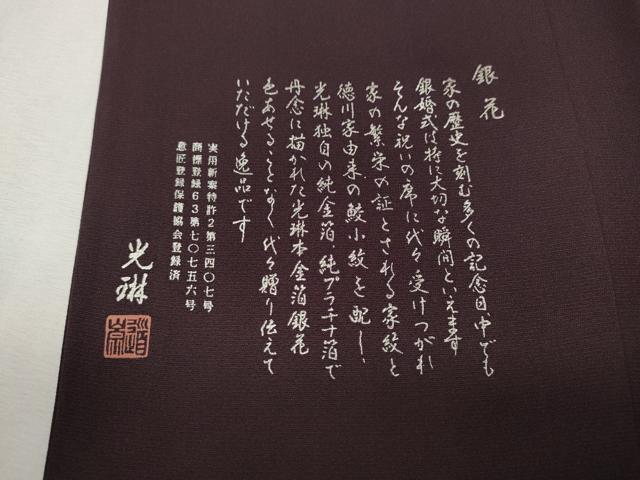 銀花
家の歴史を刻む多くの記念日、中でも
銀婚式は特に大切な瞬間といえます
そんな祝いの席に代々受けつがれ
家の繁栄の証とされる家紋と
徳川家由来の鮫小紋を配し、
光琳独自の純金箔純プラチナ箔で
丹念に描かれた光琳本金箔銀花
色あせることなく代々贈り伝えて
いただける逸品です
実用新案特許2第三四〇七号
商標登録63第七〇七五六号
意匠登録保護協会登録済
光琳